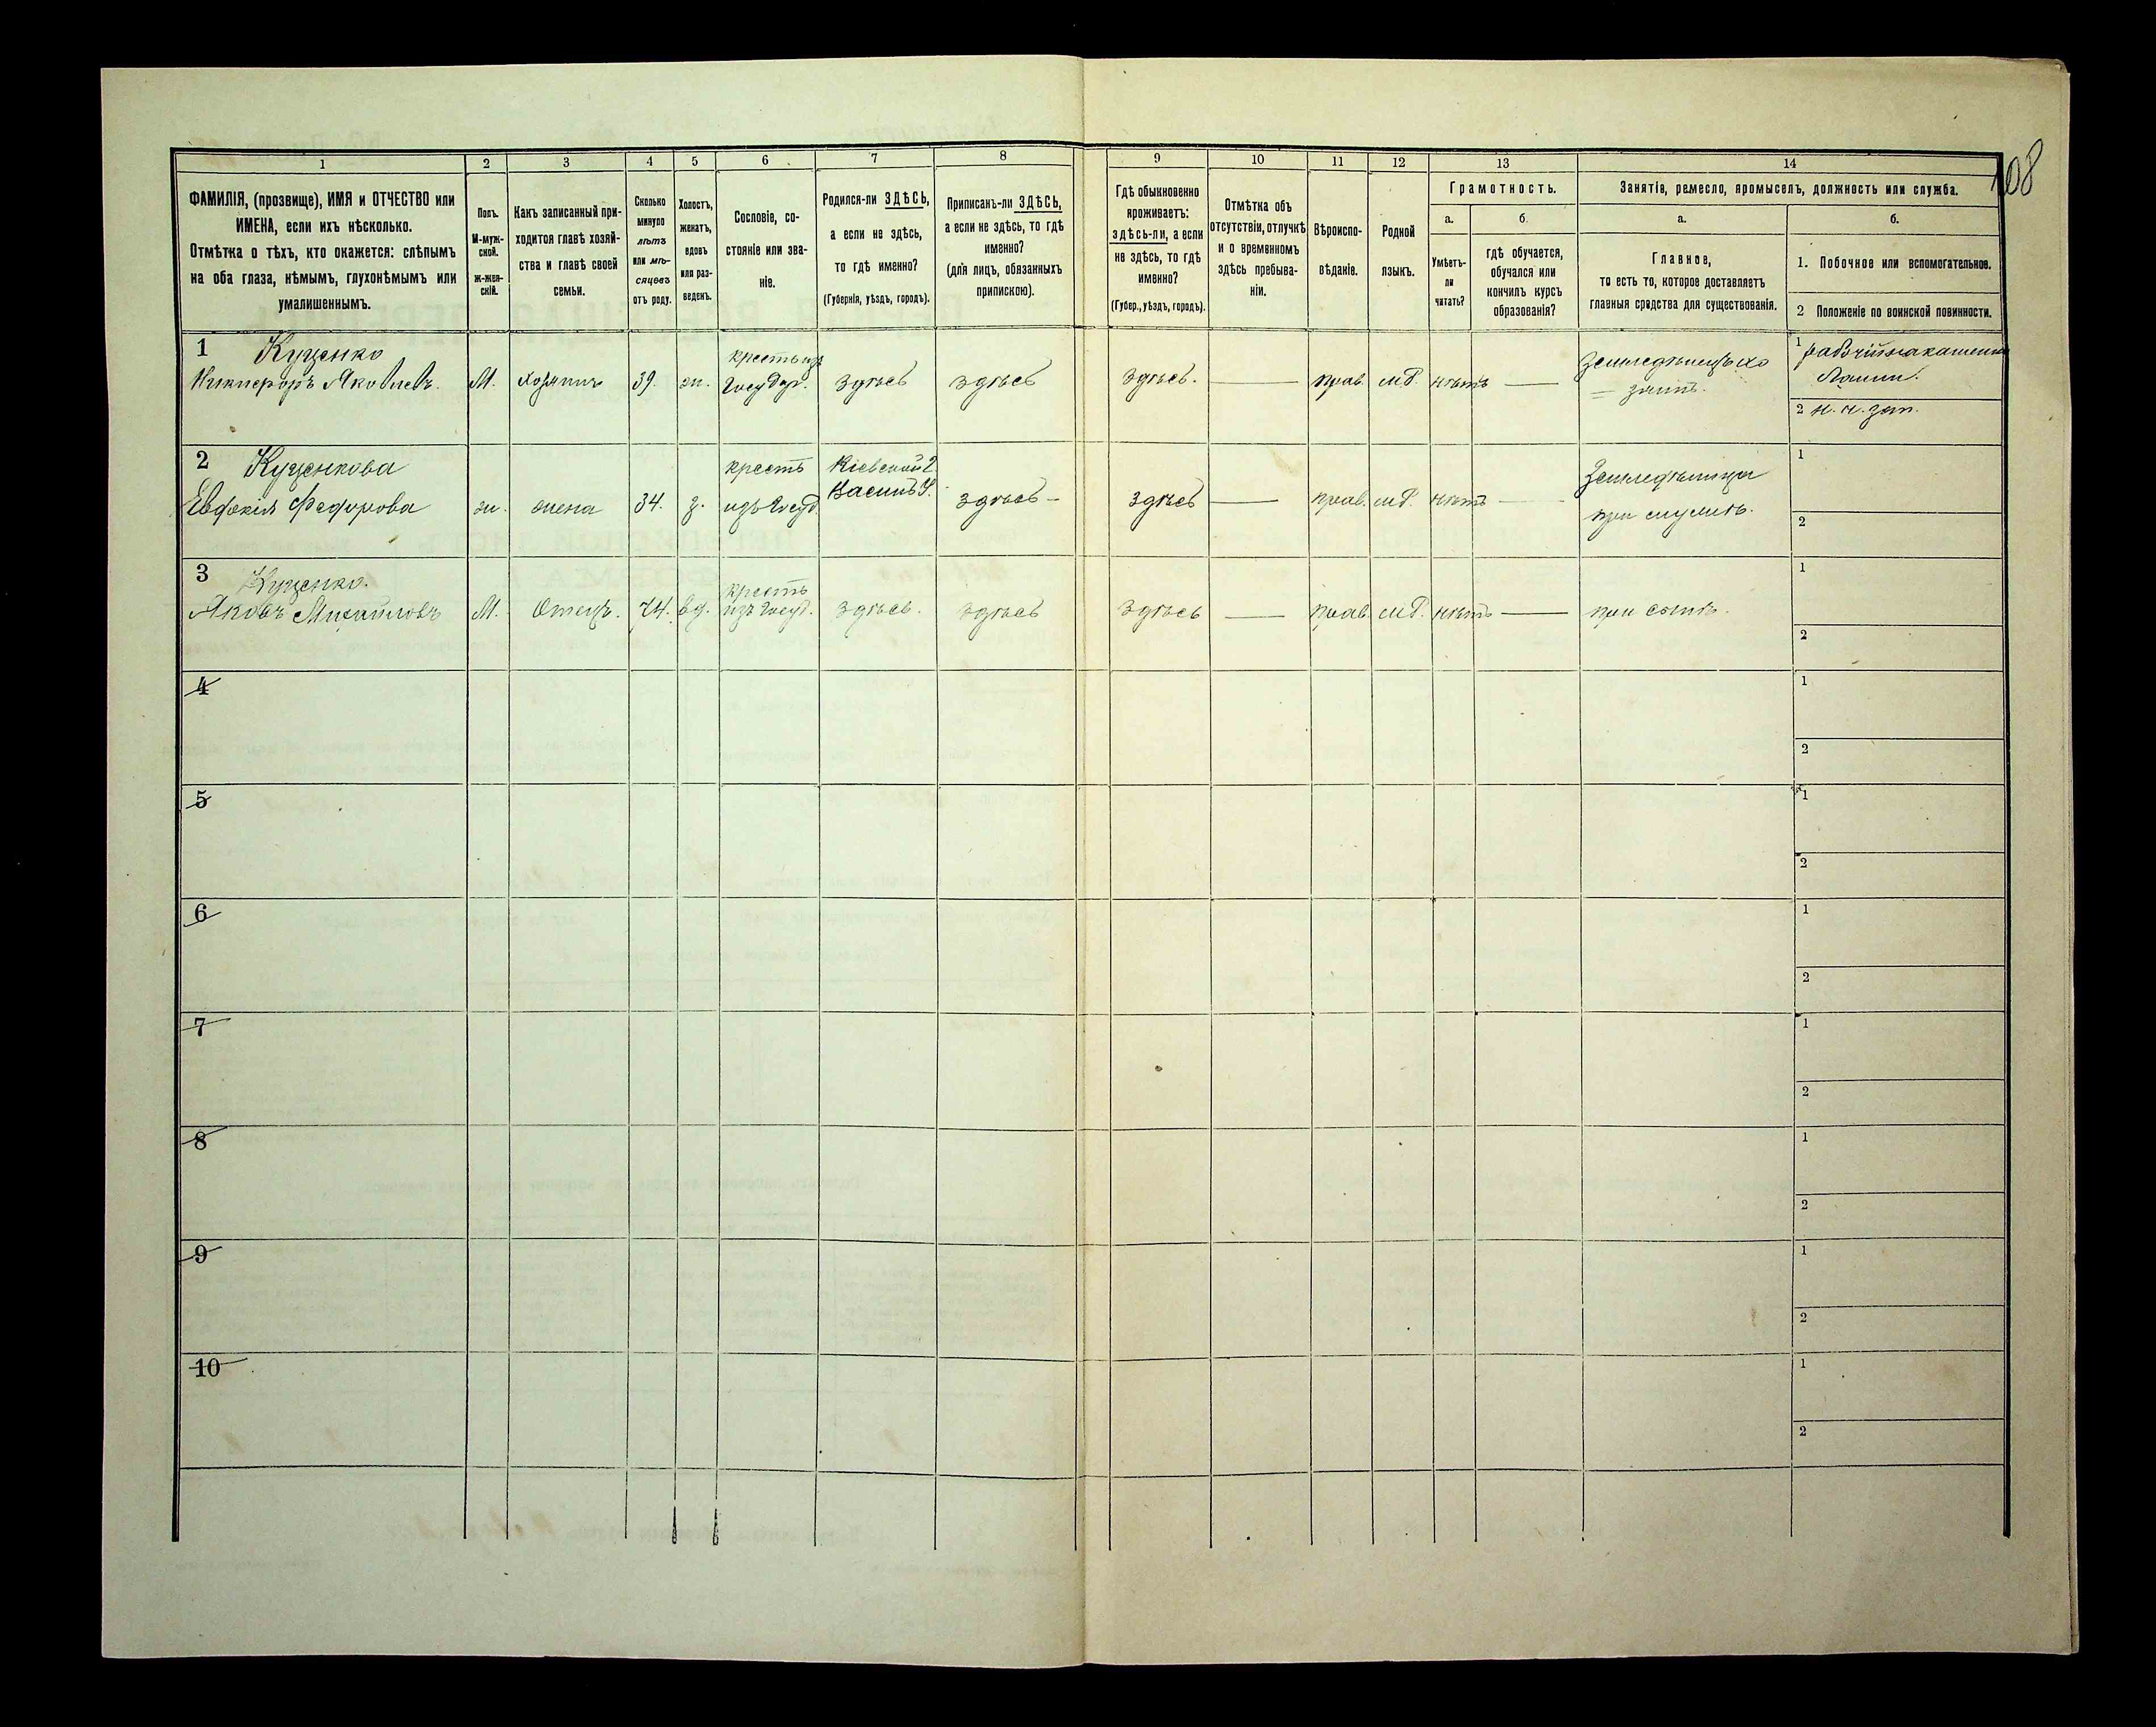 108
1
2
3
4
5
6
7
8
9
10
11
12
13
14
ФАМИЛІЯ, (прозвище), ИМЯ и ОТЧЕСТВО или
ИМЕНА, если ихъ нѣсколько.
Отмѣтка о тѣхъ, кто окажется: слѣпымъ
на оба глаза, нѣмымъ, глухонѣмымъ или
умалишеннымъ.
Полъ.
М-муж-
ской.
ж-жен-
скій.
Какъ записанный при-
ходится главѣ хозяй-
ства и главѣ своей
семьи.
Сколько
минуло
лѣтъ
или мѣ-
сяцевъ
отъ роду.
Холостъ,
женатъ,
вдовъ
или раз-
веденъ.
Сословіе, со-
стояніе или зва-
ніе.
Родился-ли ЗДѢСЬ,
а если не здѣсь,
то гдѣ именно?
(Губернія, уѣздъ, городъ).
Приписанъ-ли ЗДѢСЬ,
а если не здѣсь, то гдѣ
именно?
(для лицъ, обязанныхъ
припискою).
Гдѣ обыкновенно
проживаетъ:
здѣсь-ли, а если
не здѣсь, то гдѣ
именно?
(Губер., уѣздъ, городъ).
Отмѣтка объ
отсутствіи, отлучкѣ
и о временномъ
здѣсь пребыва-
ніи.
Вѣроиспо-
вѣданіе.
Родной
языкъ.
Грамотность.
а.
Умѣетъ-
ли
читать?
б.
гдѣ обучается,
обучался или
кончилъ курсъ
образованія?
Занятіе, ремесло, промыселъ, должность или служба.
а.
Главное,
то есть то, которое доставляетъ
главныя средства для существованія.
б.
1. Побочное или вспомогательное.
2 Положеніе по воинской повинности.
1 Куценко
Никифоръ Яковлевъ.
М.
хозяинъ
39.
ж.
крестьиз
Государ.
здѣсь
здѣсь
здѣсь.
прав.
мР.
нѣтъ
Земледѣлецъ хо
зяинъ.
1 рабочій на каменн
2 н. ч. зап.
2 Куценкова
Евфокія Федорова
ж.
жена
34.
з.
крестъ
изъ Госуд.
Кіевской г.
Васил. У.
здѣсь
здѣсь
прав.
мР.
нѣтъ
Земледѣлица
при мужѣ.
1
2
3 Куценко.
Яковъ Михайловъ
М.
Отецъ.
74.
вд.
крестъ
изъ Госуд.
здѣсь.
здѣсь
здѣсь
прав.
мР.
нѣтъ
при сынѣ.
1
2
4
1
2
5
1
2
6
1
2
7
1
2
8
1
2
9
1
2
10
1
2